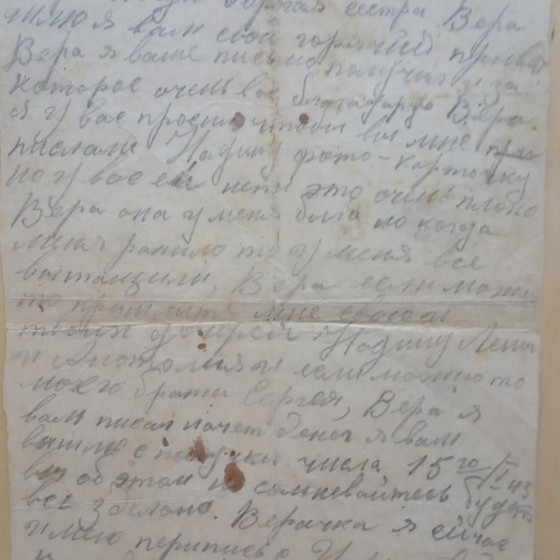 дорогая сестра Вера
шлю я вам свой горячий привет
Вера я ваше письмо получил за
которое очень вас благодарю Вера
я у вас просил чтобы вы мне
послали Надину фото-карточку
но у вас ей нет это очень плохо
Вера она у меня была но когда
меня ранило то у меня все
вытащили, Вера если можно
то пришлите мне своей
Надину Лени
и Анатолия и если можно то
моего брата Сергея, Вера я
вам писал нащет денег я вам
вышлю с получки числа 15го
вы об этом не сомневайтесь будет
все зделано. Верачка я сейчас
имею перепись с